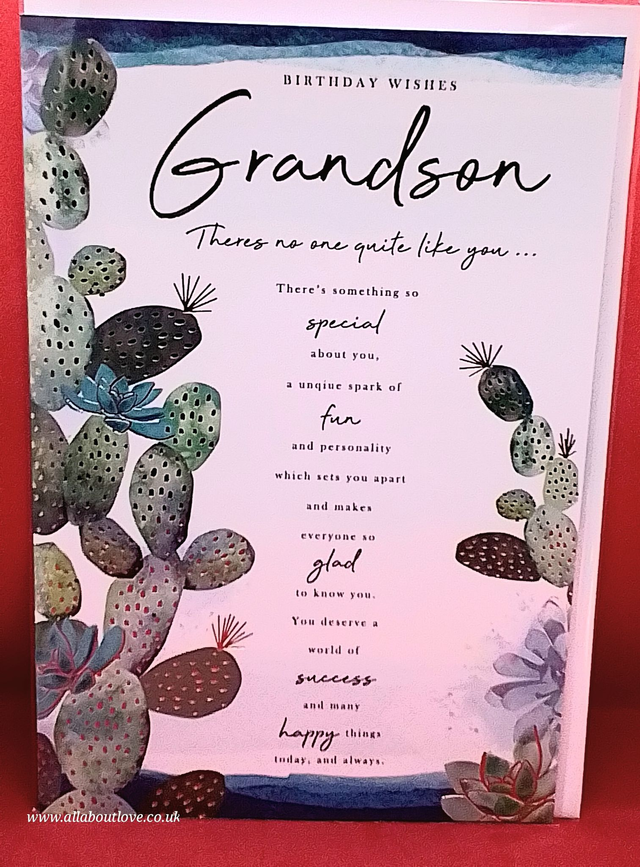 BIRTHDAY WISHES
Grandson
Theres no one quite like you ...
There's something so
special
about you,
a unqiue spark of
fun
and personality
which sets you apart
and makes
everyone so
glad
to know you.
You deserve a
world of
success
and many
happy things
today, and always.
www.allaboutlove.co.uk